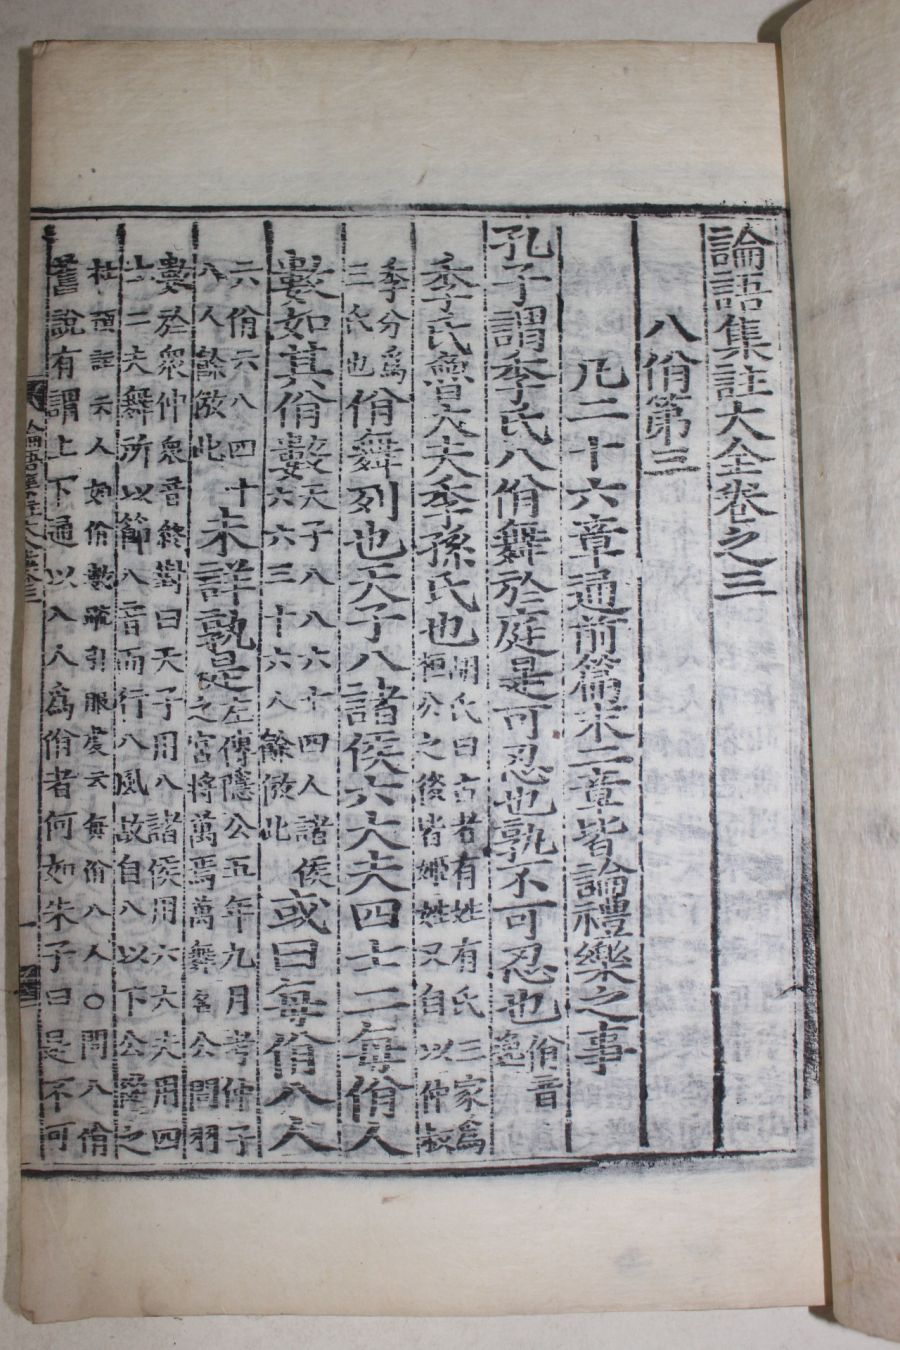 論語集註大全卷之三
八佾第三
凡二十六章通前篇末二章皆論禮樂之事
孔子謂季氏八佾舞於庭是可忍也孰不可忍也佾音逸
季氏魯大夫季孫氏也胡氏曰古者有姓有氏三家爲桓公之後皆姬姓又自以仲叔
季分爲三氏也佾舞列也天子八諸侯六大夫四士二每佾人
數如其佾數天子八八六十四人諸侯六六三十六人餘倣此或曰每佾八人
六佾六八四十八人餘倣此未詳孰是左傳隱公五年九月考仲子之宮將萬焉萬舞名公問羽
數於衆仲衆音終對曰天子用八諸侯用六大夫用四士二夫舞所以節八音而行八風故自八以下公從之
杜預註云人如佾數疏引服虔云每佾八人○問八佾
舊說有謂上下通以八人爲佾者何如朱子曰是不可
論語集註大全卷三
一